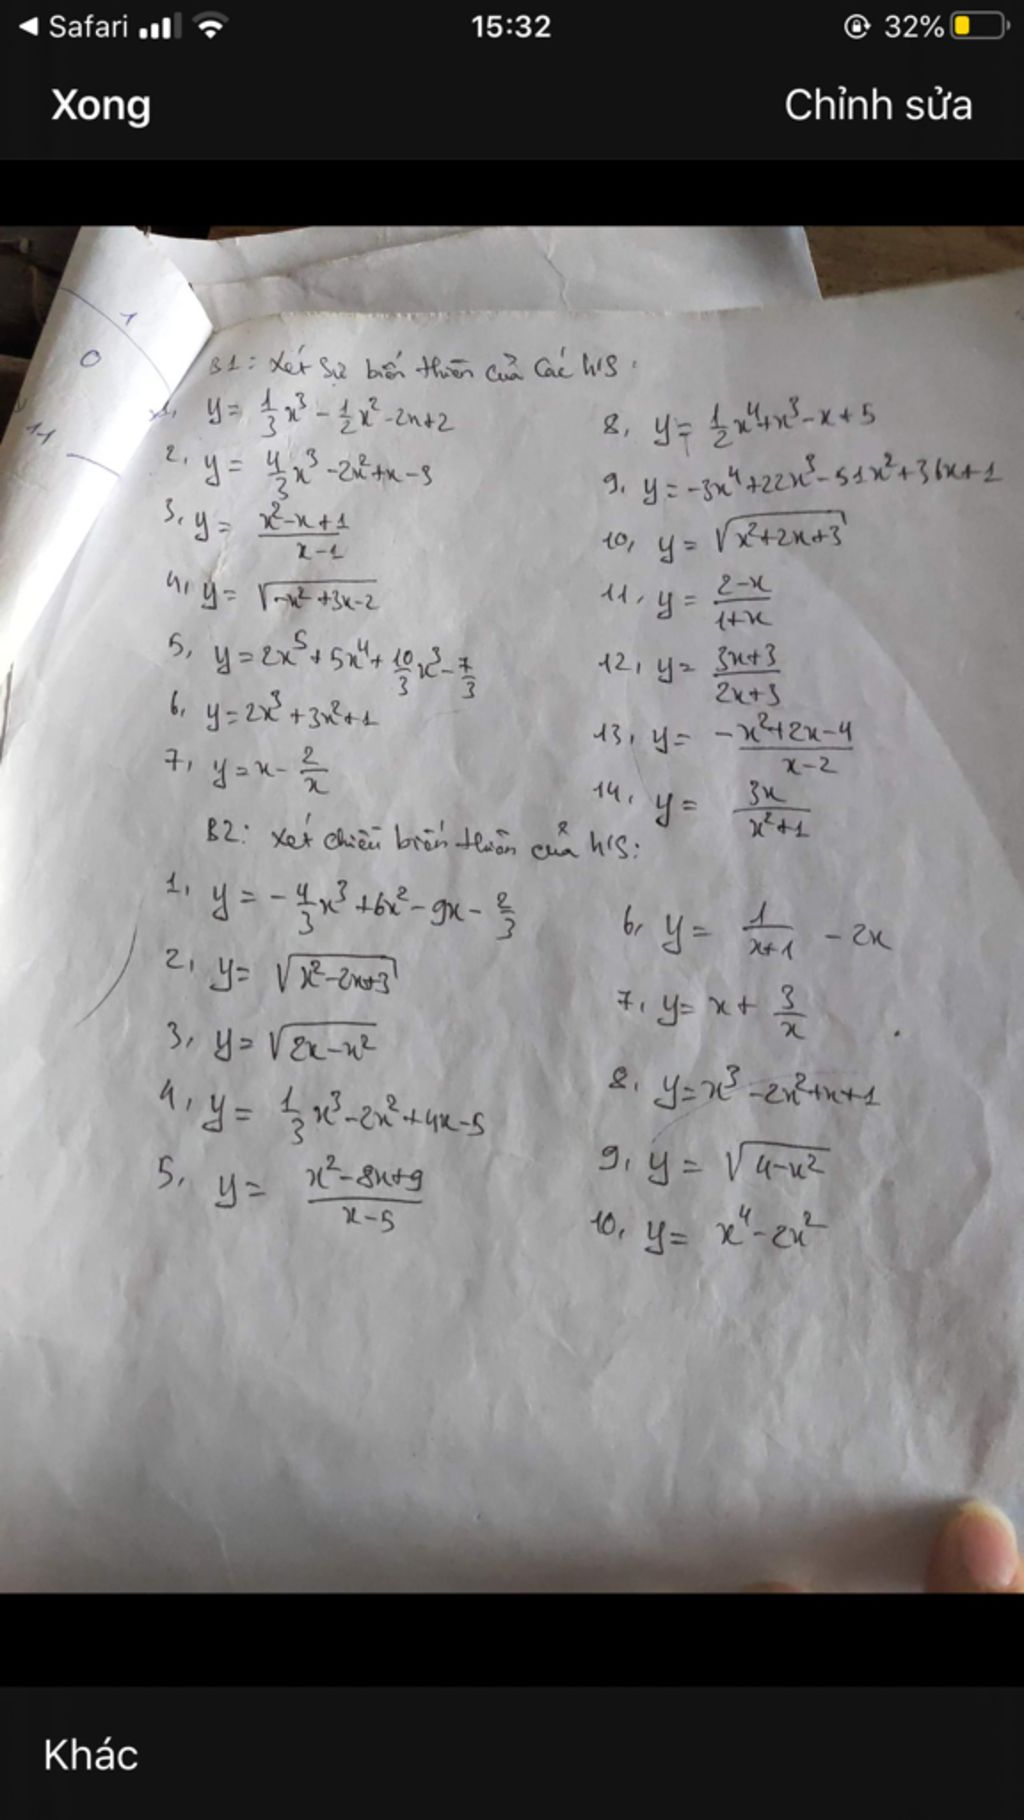 Safari 15:32 32%
Xong Chỉnh sửa
1
0
11
B1: Xét sự biến thiên của các h/s:
1, y = 1/3 x³ - 1/2 x² - 2x + 2
2, y = 4/3 x³ - 2x² + x - 3
3, y = (x² - x + 1)/(x - 1)
4, y = √(-x² + 3x - 2)
5, y = 2x⁵ + 5x⁴ + 10/3 x³ - 7/3
6, y = 2x³ + 3x² + 1
7, y = x - 2/x
8, y = 1/2 x⁴ + x³ - x + 5
9, y = -3x⁴ + 22x³ - 51x² + 36x + 1
10, y = √(x² + 2x + 3)
11, y = (2 - x)/(1 + x)
12, y = (3x + 3)/(2x + 3)
13, y = (-x² + 2x - 4)/(x - 2)
14, y = 3x/(x² + 1)
B2: Xét chiều biến thiên của h/s:
1, y = -4/3 x³ + 6x² - 9x - 2/3
2, y = √(x² - 2x + 3)
3, y = √(2x - x²)
4, y = 1/3 x³ - 2x² + 4x - 5
5, y = (x² - 8x + 9)/(x - 5)
6, y = 1/(x + 1) - 2x
7, y = x + 3/x
8, y = x³ - 2x² + x + 1
9, y = √(4 - x²)
10, y = x⁴ - 2x²
Khác